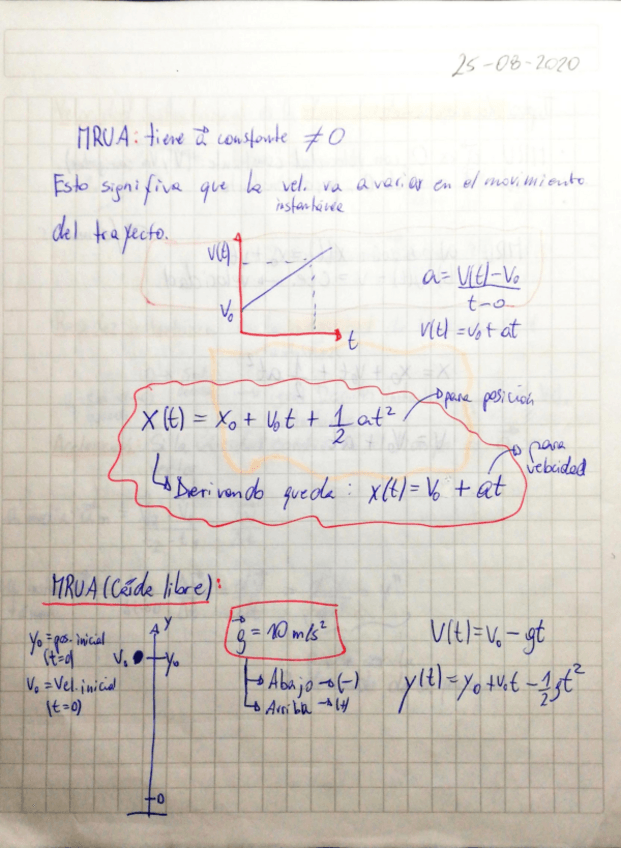 25-08-2020
MRUA: tiene a⃗ constante ≠ 0
Esto signifiva que la vel. va a variar en el movimiento
instantánea
del trayecto.
V(t)
V₀
t
a = V(t) - V₀ / t - 0
V(t) = V₀ + at
X(t) = X₀ + V₀t + 1/2 at²
para posición
Derivando queda: x(t) = V₀ + at
para velocidad
MRUA (Caída libre):
y₀ = pos. inicial
(t=0)
V₀ = Vel. inicial
(t=0)
y
V₀
y₀
0
g⃗ = 10 m/s²
Abajo → (-)
Arriba → (+)
V(t) = V₀ - gt
y(t) = y₀ + V₀t - 1/2 gt²